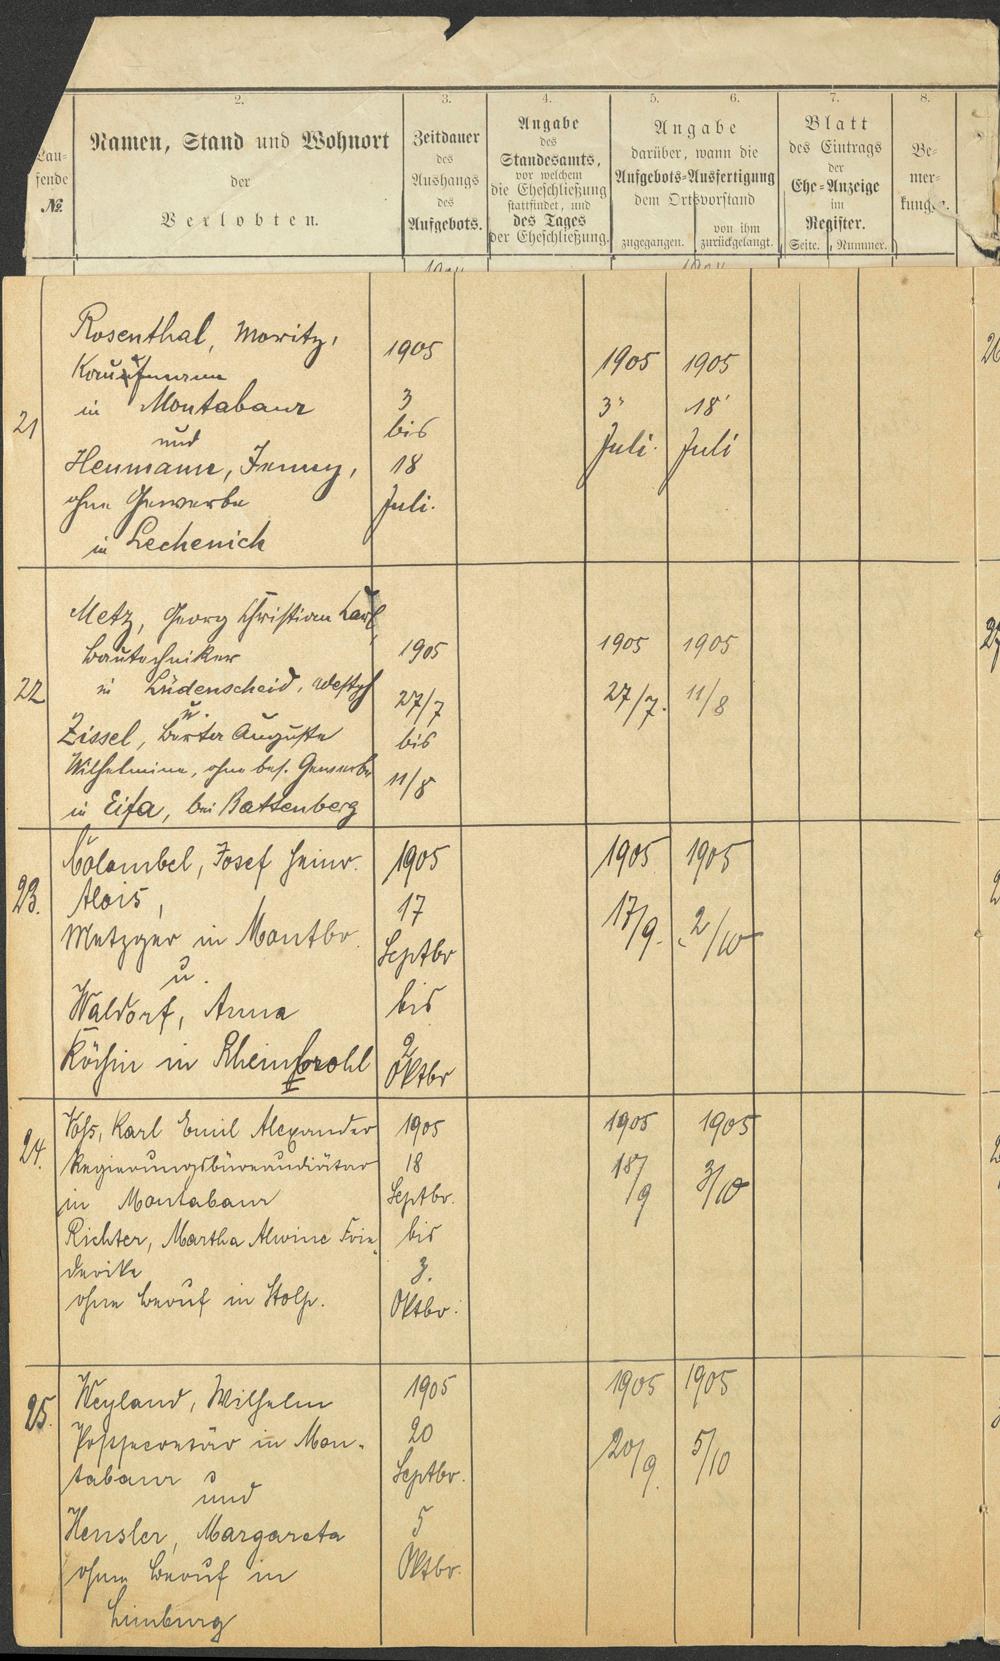 2.
3.
4.
5.
6.
7.
8.
Lau-
fende
№.
Namen, Stand und Wohnort
der
Verlobten.
Zeitdauer
des
Aushangs
des
Aufgebots.
Angabe
des
Standesamts,
vor welchem
die Eheschließung
stattfindet, und
des Tages
der Eheschließung.
Angabe
darüber, wann die
Aufgebots-Ausfertigung
dem Ortsvorstand
zugegangen.
von ihm
zurückgelangt.
Blatt
des Eintrags
der
Ehe-Anzeige
im
Register.
Seite.
Nummer.
Be-
mer-
kungen.
21
Rosenthal, Moritz,
Kaufmann
in Montabaur
und
Heumann, Jenny,
ohne Gewerbe
in Lechenich
1905
3
bis
18
Juli.
1905
3
Juli.
1905
18
Juli
22
Metz, Georg Christian Karl,
Bautechniker
in Lüdenscheid, Westph
u.
Zissel, Berta Auguste
Wilhelmine, ohne bes. Gewerbe
in Eifa, bei Battenberg
1905
27/7
bis
11/8
1905
27/7.
1905
11/8
23.
Colombel, Josef Heinr.
Alois,
Metzger in Montbr.
u.
Waldorf, Anna
Köchin in Rheinbrohl
1905
17
Septbr
bis
2
Oktbr
1905
17/9.
1905
2/10
24.
Voss, Karl Emil Alexander
Regierungsbüreaudiätar
in Montabaur
Richter, Martha Alwine Frie-
derike
ohne Beruf in Stolp.
1905
18
Septbr.
bis
3.
Oktbr.
1905
18/9
1905
3/10
25.
Weyland, Wilhelm
Postsecretär in Mon-
tabaur
und
Hensler, Margareta
ohne Beruf in
Limburg
1905
20
Septbr.
5
Oktbr.
1905
20/9.
1905
5/10